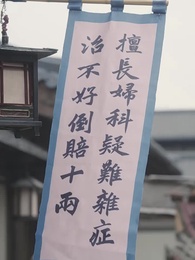 擅長婦科疑難雜症
治不好倒賠十兩